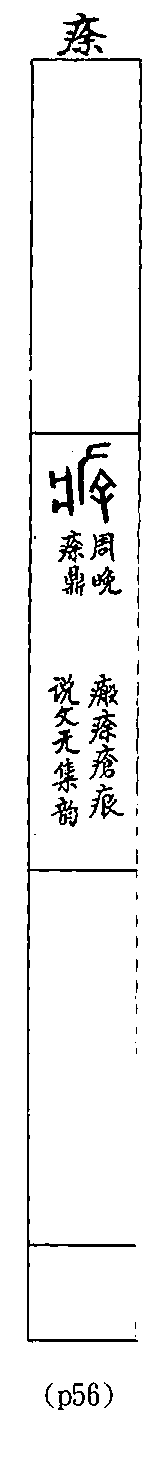 㾻
㾻鼎
周晚
说文无集韵
瘢㾻瘡痕
(p56)